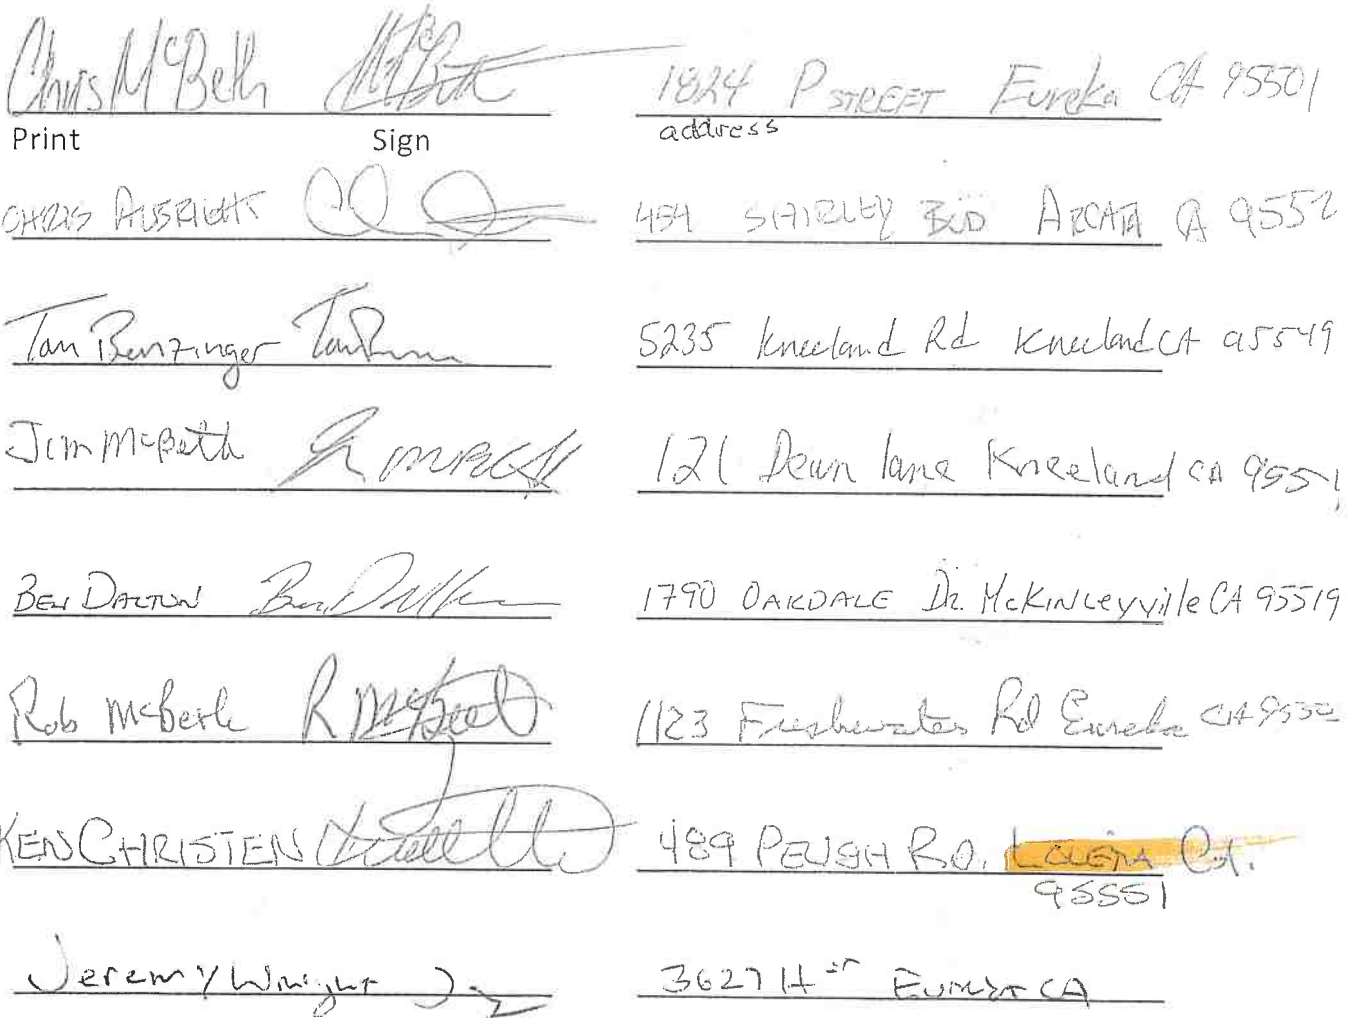 Chris McBeth McBeth 1824 P STREET Eureka CA 95501
Print Sign address
CHRIS ALBRIGHT 454 SHIRLEY BLVD ARCATA CA 9552
Benzinger 5235 Kneeland Rd Kneeland CA 95549
Jim McBeth 121 lane Kneeland CA 9551
BEN DALTON Ben Dalton 1790 OAKDALE Dr. McKinleyville CA 95519
Rob McBeth R McBeth 1123 Freshwater Rd Eureka CA
KEN CHRISTEN 489 PEUGH RD. LOLETA CA.
95551
Jeremy Wright 3627 H st EUREKA CA